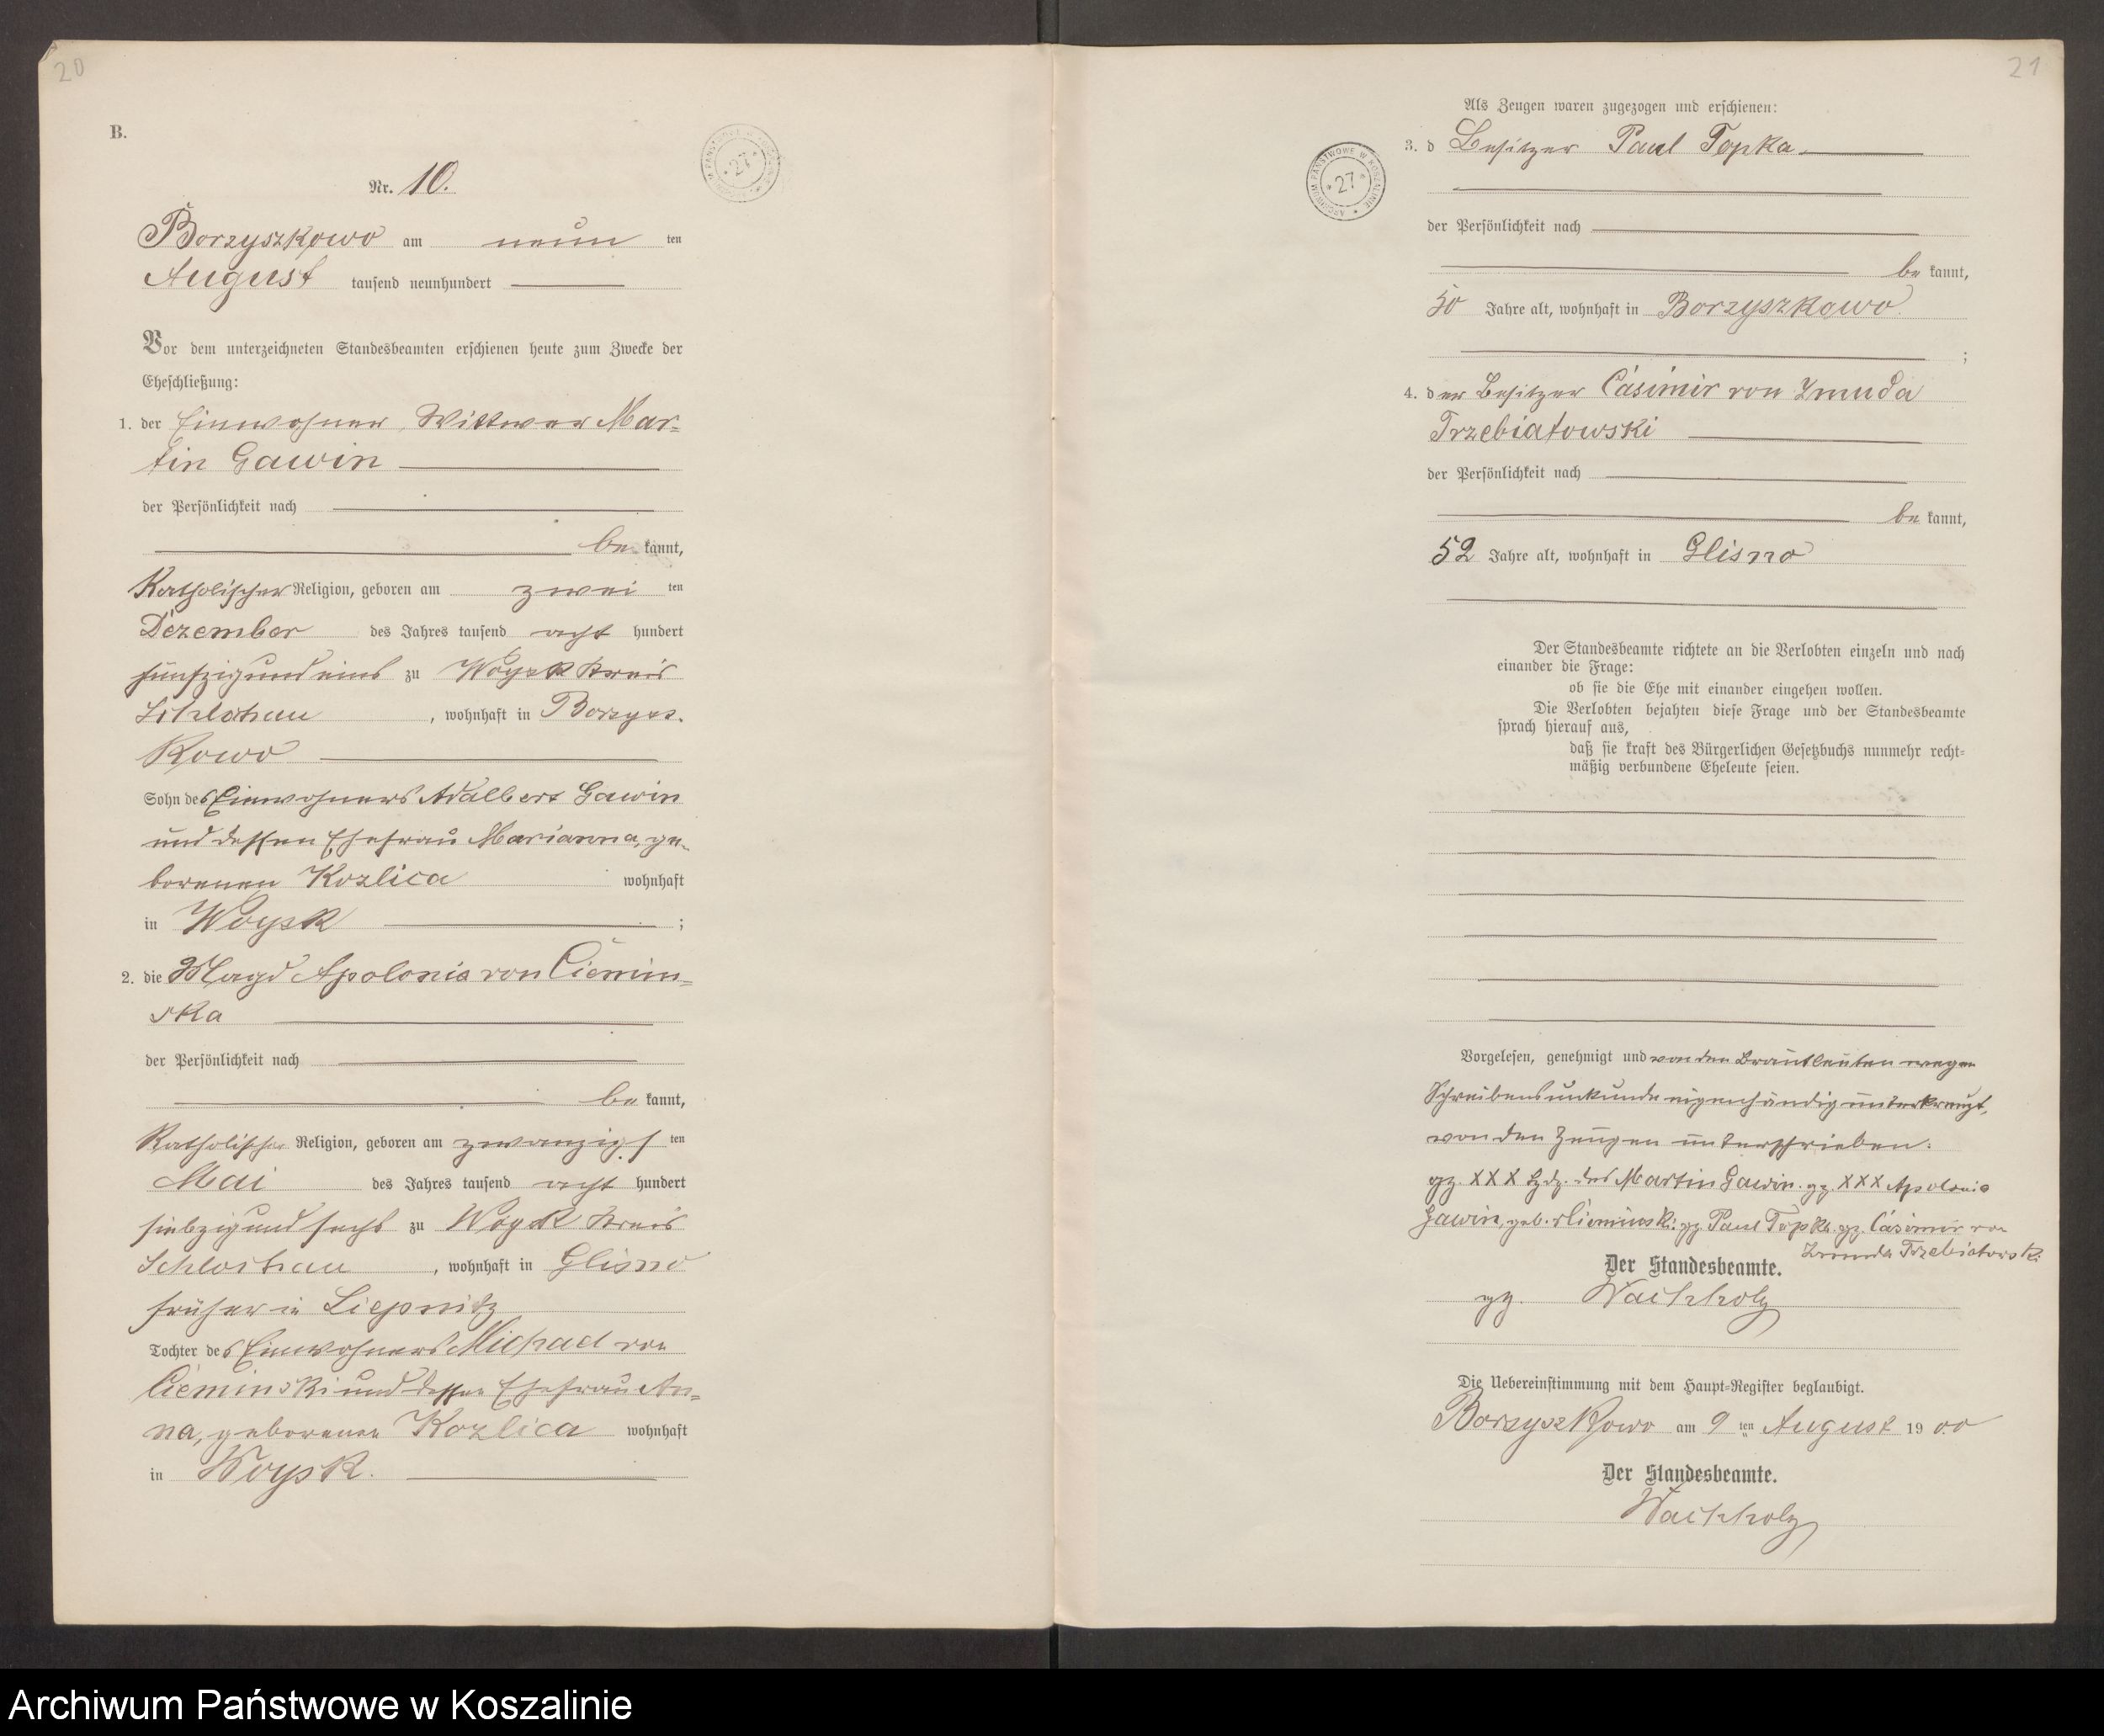 20
B.
Nr. 10.
Borzyszkowo am neun ten
August tausend neunhundert
Vor dem unterzeichneten Standesbeamten erschienen heute zum Zwecke der
Eheschließung:
1. der Einwohner, Wittwer Mar=
tin Gawin
der Persönlichkeit nach
be kannt,
Katholischer Religion, geboren am zwei ten
Dezember des Jahres tausend acht hundert
fünfzig und eins zu Woysk Kreis
Schlochau, wohnhaft in Borzysz-
kowo
Sohn des Einwohners Adalbert Gawin
und dessen Ehefrau Marianna, ge-
borenen Kozlica wohnhaft
in Woysk ;
2. die Magd Apolonia von Ciemin=
ska
der Persönlichkeit nach
be kannt,
Katholischer Religion, geboren am zwanzigs ten
Mai des Jahres tausend acht hundert
siebzig und sechs zu Woysk Kreis
Schlochau, wohnhaft in Glisno
früher in Liepnitz
Tochter des Einwohners Michael von
Cieminski und dessen Ehefrau An=
na, geborenen Kozlica wohnhaft
in Woysk.
ARCHIWUM PAŃSTWOWE W KOSZALINIE
* 27 *
21
Als Zeugen waren zugezogen und erschienen:
3. d Besitzer Paul Topka
der Persönlichkeit nach
be kannt,
50 Jahre alt, wohnhaft in Borzyszkowo.
;
4. der Besitzer Casimir von Zmuda
Trzebiatowski
der Persönlichkeit nach
be kannt,
52 Jahre alt, wohnhaft in Glisno
ARCHIWUM PAŃSTWOWE W KOSZALINIE
* 27 *
Der Standesbeamte richtete an die Verlobten einzeln und nach
einander die Frage:
ob sie die Ehe mit einander eingehen wollen.
Die Verlobten bejahten diese Frage und der Standesbeamte
sprach hierauf aus,
daß sie kraft des Bürgerlichen Gesetzbuchs nunmehr recht=
mäßig verbundene Eheleute seien.
Vorgelesen, genehmigt und von den Brautleuten wegen
Schreibensunkunde eigenhändig unterkreuzt,
von den Zeugen unterschrieben.
gz. XXX Hdz. des Martin Gawin. gz. XXX Apolonia
Gawin, geb. v Cieminski gz. Paul Topka. gz. Casimir von
Zmuda Trzebiatowski
Der Standesbeamte.
gz. Wachholz
Die Uebereinstimmung mit dem Haupt-Register beglaubigt.
Borzyszkowo am 9 ten August 19 00
Der Standesbeamte.
Wachholz
Archiwum Państwowe w Koszalinie